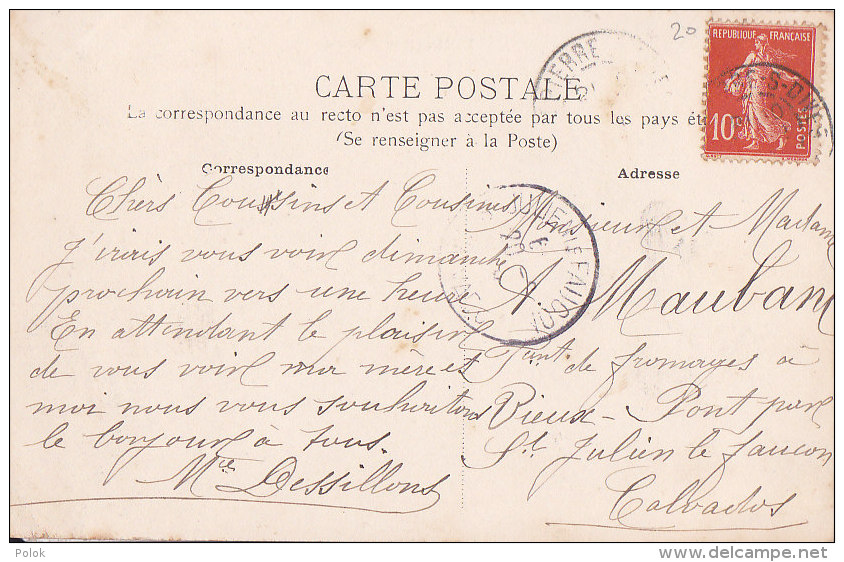 20
REPUBLIQUE FRANÇAISE
10c
POSTES
CARTE POSTALE
La correspondance au recto n'est pas acceptée par tous les pays ét
(Se renseigner à la Poste)
Correspondance
Chèrs Coussins et Cousines
j'irais vous voir dimanche
prochain vers une heure
En attendant le plaisir
de vous voir ma mère et
moi nous vous souhaitons
le bonjour à tous.
Mce Dessillons
Adresse
Monsieur et Madame
A. Mauban
de fromages à
Vieux-Pont par
St Julien le faucon
Calvados
Polok
delcampe.net